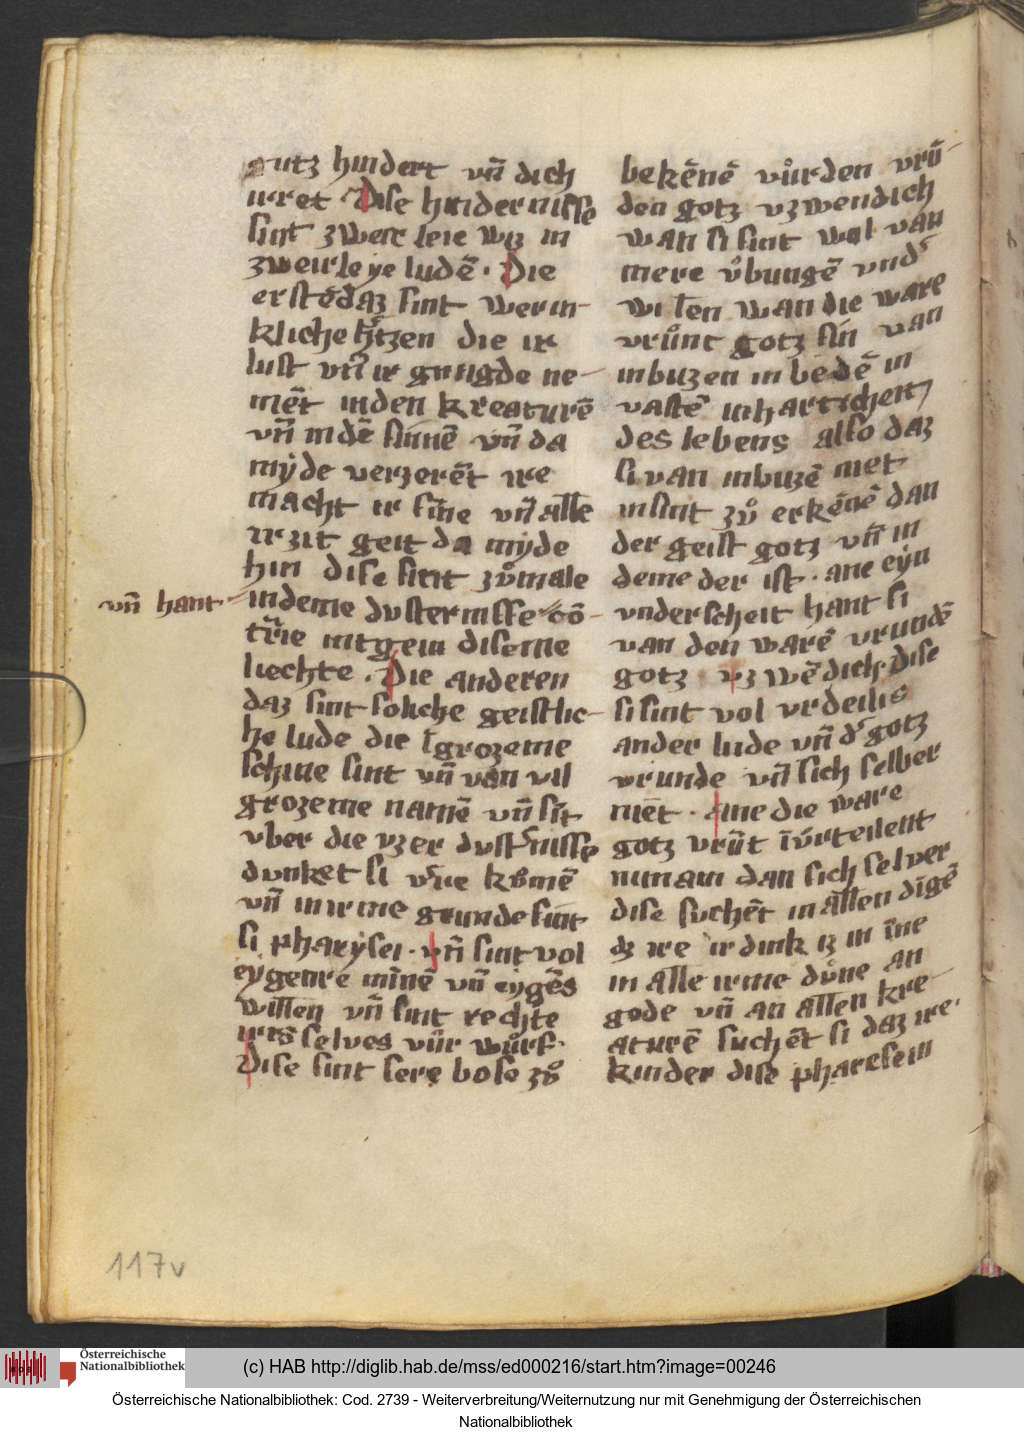 gutz hindert vn̄ dich
irret Dise hindernisse
sint zweir leie wiz in
zweirleye ludē. Die
erstē daz sint werin-
kliche h'tzen die ir
lust vn̄ ir gnugde ne-
mēt inden kreaturē
vn̄ in dē sinnē vn̄ da
myde verzerēt ire
macht ir sīne vn̄ alle
ir zit geit da myde
hin dise sint zů male
vn̄ hant
indeme dusternisse cō-
trīe intgein diseme
liechte. Die anderen
daz sint soliche geistlic-
he lude die ī grozeme
schine sint vn̄ van vil
grozeme namē vn̄ sīt
vber die vzer dust'nisse
dunket si v're kōmē
vn̄ in irme grunde sint
si pharysei. vn̄ sint vol
eygenre minnē vn̄ eygēs
willen vn̄ sint rechte
irs selves vůr wůrf.
Dise sint sere bose zů
bekēnē vůrden vrů-
den gotz vzwendich
wan si sint wol van
mere ůbungē vnd'
wilen wan die ware
vrůnt gotz sin van
inbuzen in bedē in
vastē in hartichen
des lebens also daz
si van inbuzē niet
insint zů erkēnē dan
der geist gotz vn̄ in
deme der ist. ane eyn
vnderscheit hant si
van den warē vrundē
gotz vz wēdich. Dise
si sint vol urdeilis
ander lude vn̄ d' gotz
vrunde vn̄ sich selber
niēt. ane die ware
gotz vrūt īvrteilent
niman dan sich selver
dise suchēt in allen digē
dz ire ir dink iz in īne
in alle irme důne an
gode vn̄ an allen kre-
aturē suchēt si daz ire.
kinder dise pharesein
117v
Österreichische
Nationalbibliothek
(c) HAB http://diglib.hab.de/mss/ed000216/start.htm?image=00246
Österreichische Nationalbibliothek: Cod. 2739 - Weiterverbreitung/Weiternutzung nur mit Genehmigung der Österreichischen
Nationalbibliothek